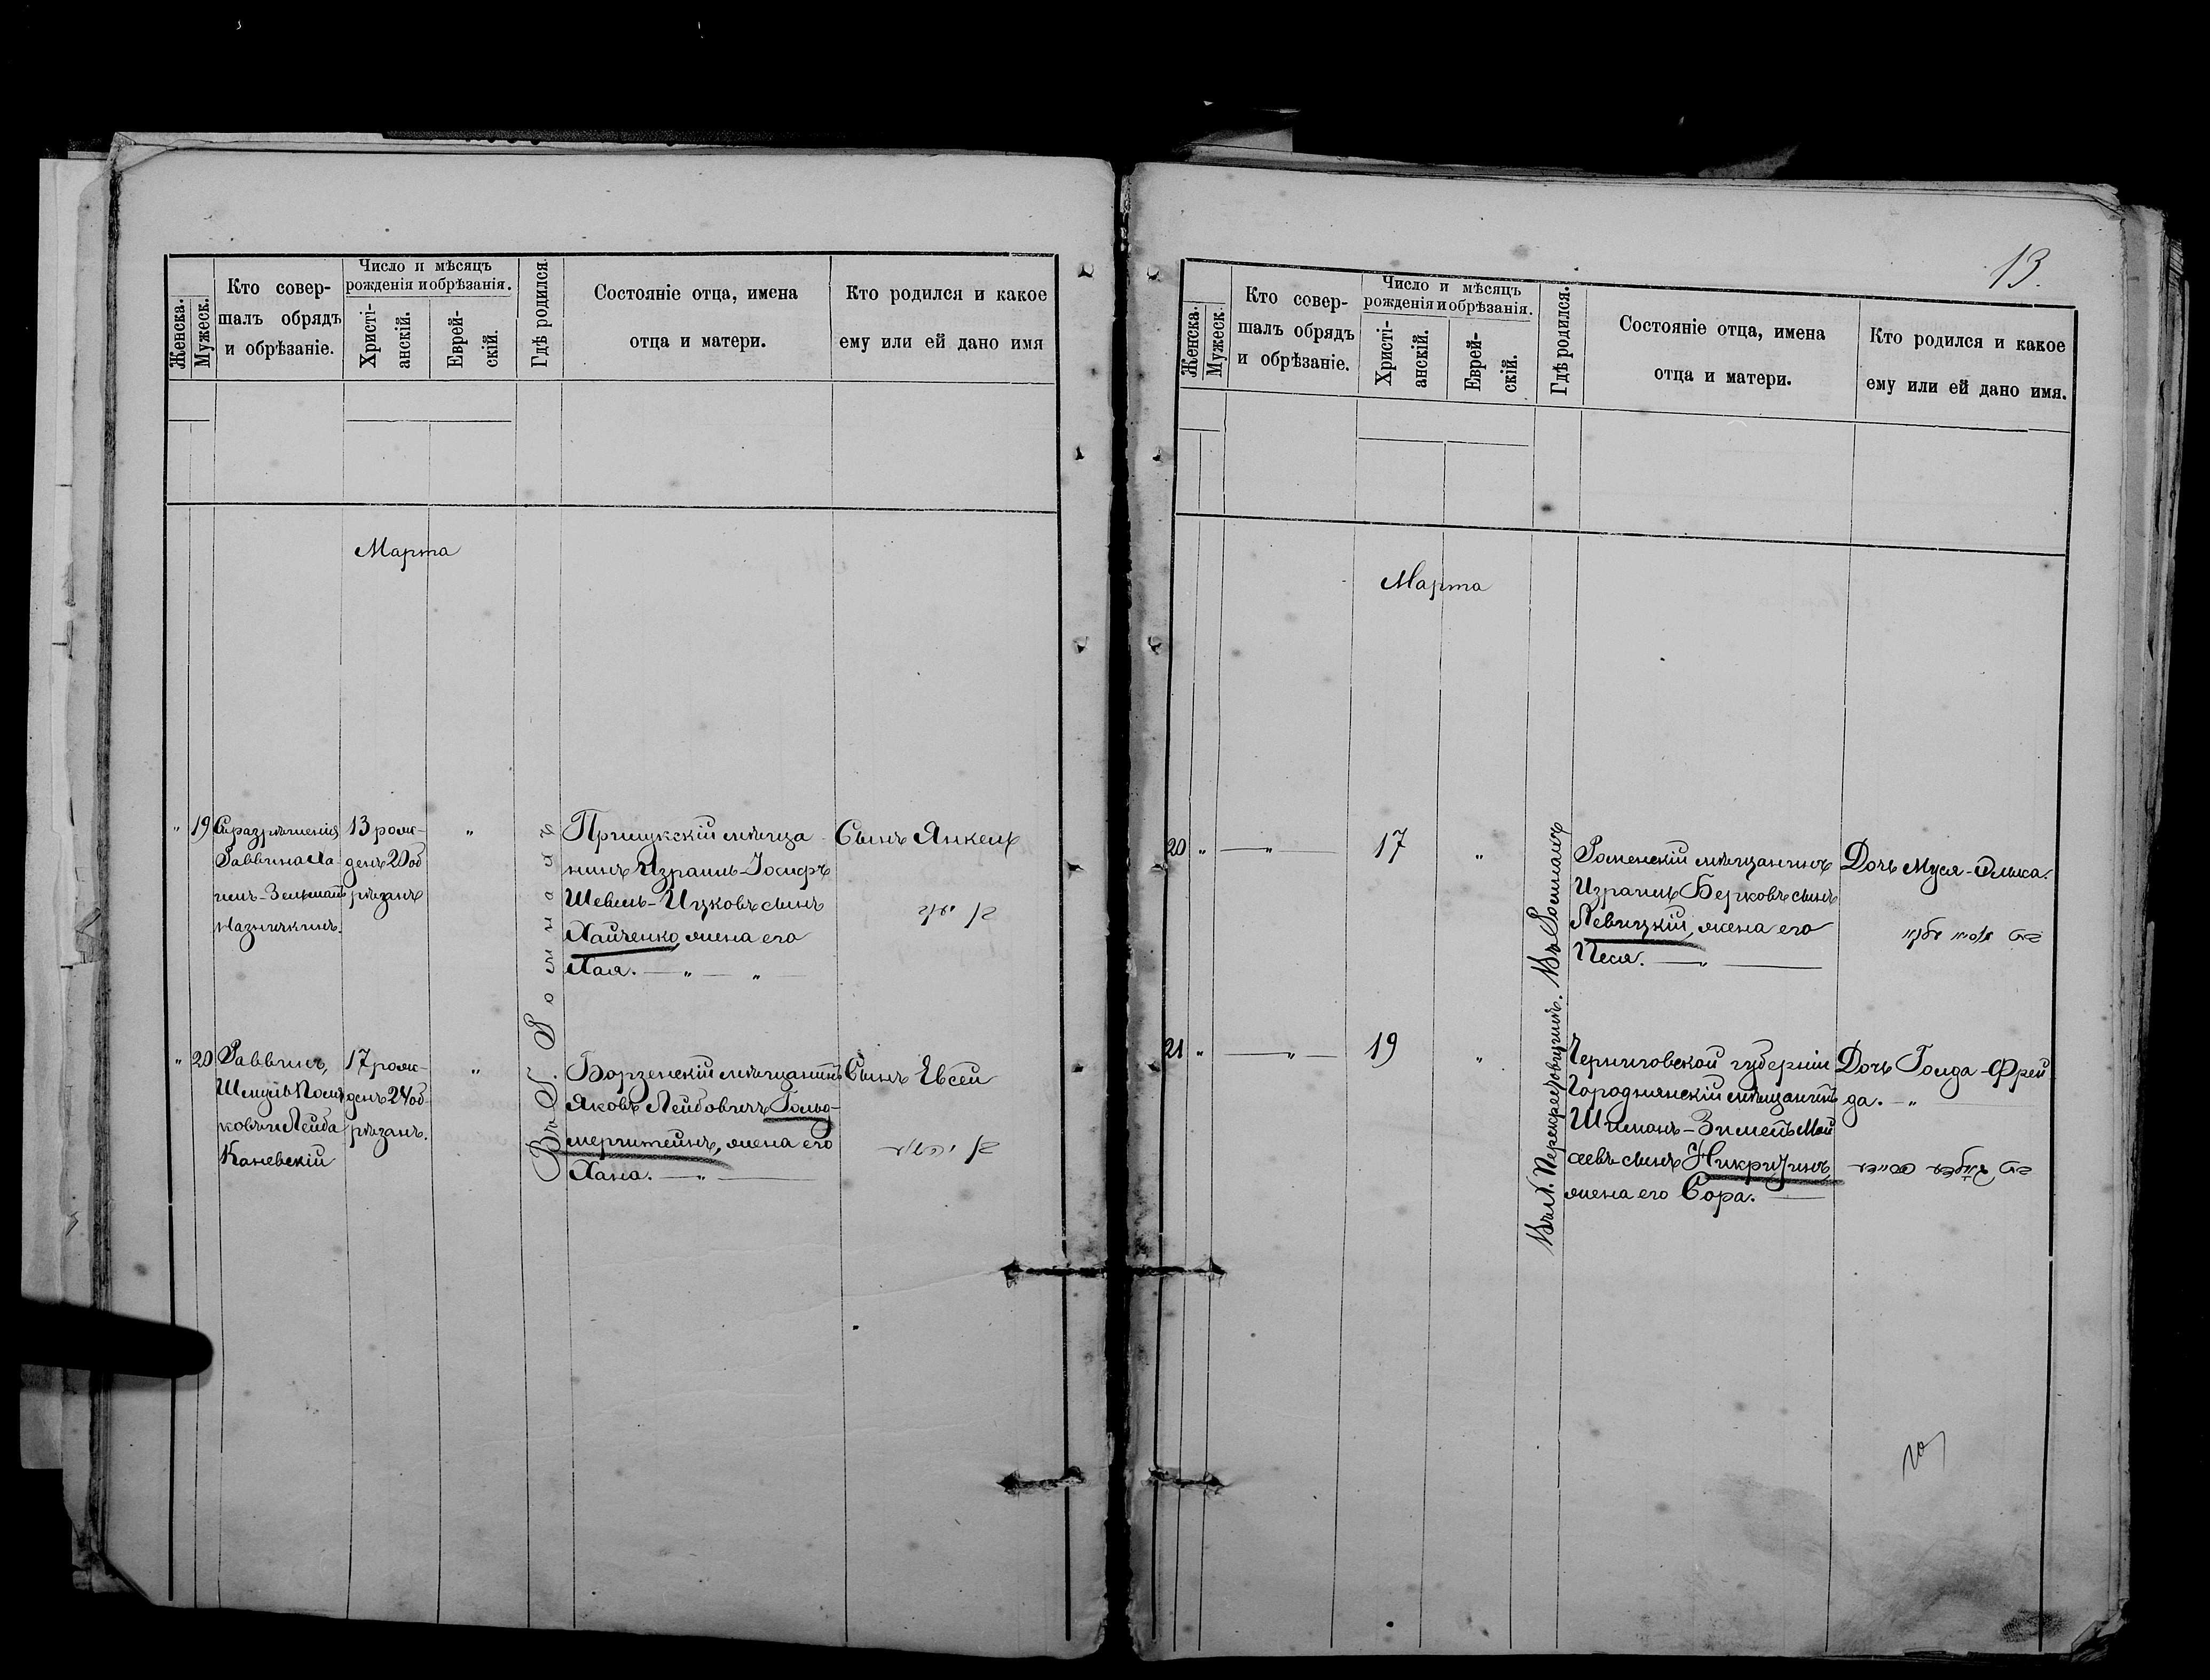 Женска.
Мужеск.
Кто совер-
шалъ обрядъ
и обрѣзаніе.
Число и мѣсяцъ
рожденія и обрѣзанія.
Христі-
анскій.
Еврей-
скій.
Гдѣ родился.
Состояніе отца, имена
отца и матери.
Кто родился и какое
ему или ей дано имя
Марта
" 19
Съ разрѣшенія
Раввина
Назинкинъ.
13 рож-
денъ 20 об
рѣзанъ
"
Въ г. Ромнахъ
Прилукскій мѣща-
нинъ Израиль-Іосифъ
Шевель-Ицковъ сынъ
Хайченко, жена его
Хая. — " — "
Сынъ Янкель
" 20
Раввинъ,
Каневскій
17 рож-
денъ 24 об-
рѣзанъ.
"
Борзенскій мѣщанинъ
Яковъ Лейбовичъ Гольд-
мерштейнъ, жена его
Хана. — " —
Сынъ Евсей
13.
Женска.
Мужеск.
Кто совер-
шалъ обрядъ
и обрѣзаніе.
Число и мѣсяцъ
рожденія и обрѣзанія.
Христі-
анскій.
Еврей-
скій.
Гдѣ родился.
Состояніе отца, имена
отца и матери.
Кто родился и какое
ему или ей дано имя.
Марта
20 " — " — 17 "
Въ Ромнахъ
Роменскій мѣщанинъ
Израиль Берковъ сынъ
Левицкій, жена его
Песя. — " —
Дочь Муся-Элька.
21 " — " — 19 "
Въ м. Перекрестовщинѣ.
Черниговской губерніи
Городнянскій мѣщанинъ
Шліома-Зимель Мой
сеевъ сынъ Никритинъ,
жена его Сора. —
Дочь Голда-Фрей
да. — " —